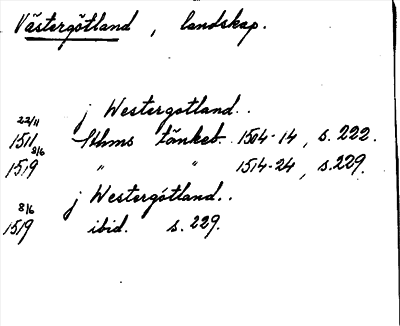 Västergötland, landskap.
j Westergotland..
22/11
1511 Sthms tänkeb. 1504-14, s. 222.
8/6
1519 " " 1514-24, s. 229.
j Westergötland..
8/6
1519 ibid. s. 229.